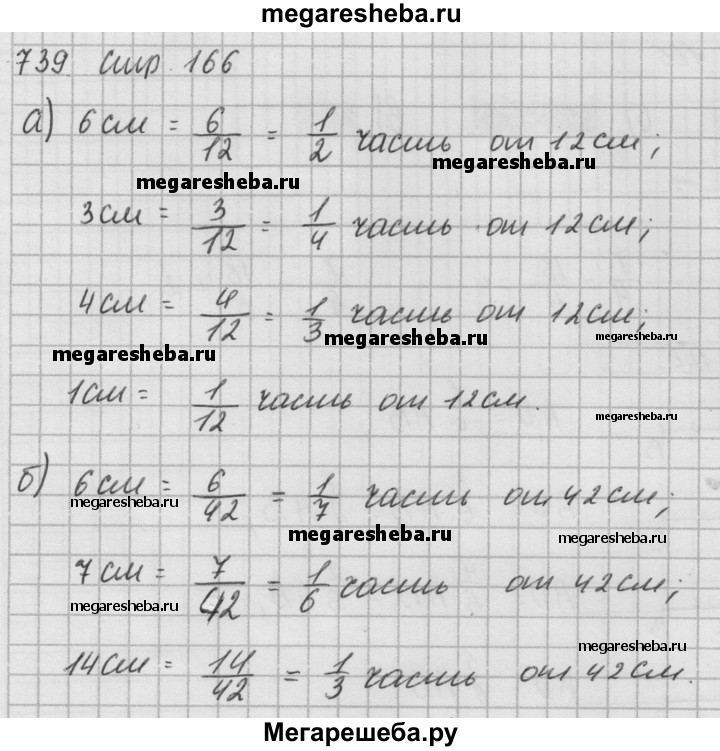 megaresheba.ru
739 стр. 166
а) 6 см = 6/12 = 1/2 часть от 12 см;
megaresheba.ru
megaresheba.ru
3 см = 3/12 = 1/4 часть от 12 см;
4 см = 4/12 = 1/3 часть от 12 см;
megaresheba.ru
megaresheba.ru
megaresheba.ru
1 см = 1/12 часть от 12 см.
megaresheba.ru
б) 6 см = 6/42 = 1/7 часть от 42 см;
megaresheba.ru
megaresheba.ru
megaresheba.ru
7 см = 7/42 = 1/6 часть от 42 см;
megaresheba.ru
megaresheba.ru
14 см = 14/42 = 1/3 часть от 42 см.
Мегарешеба.ру